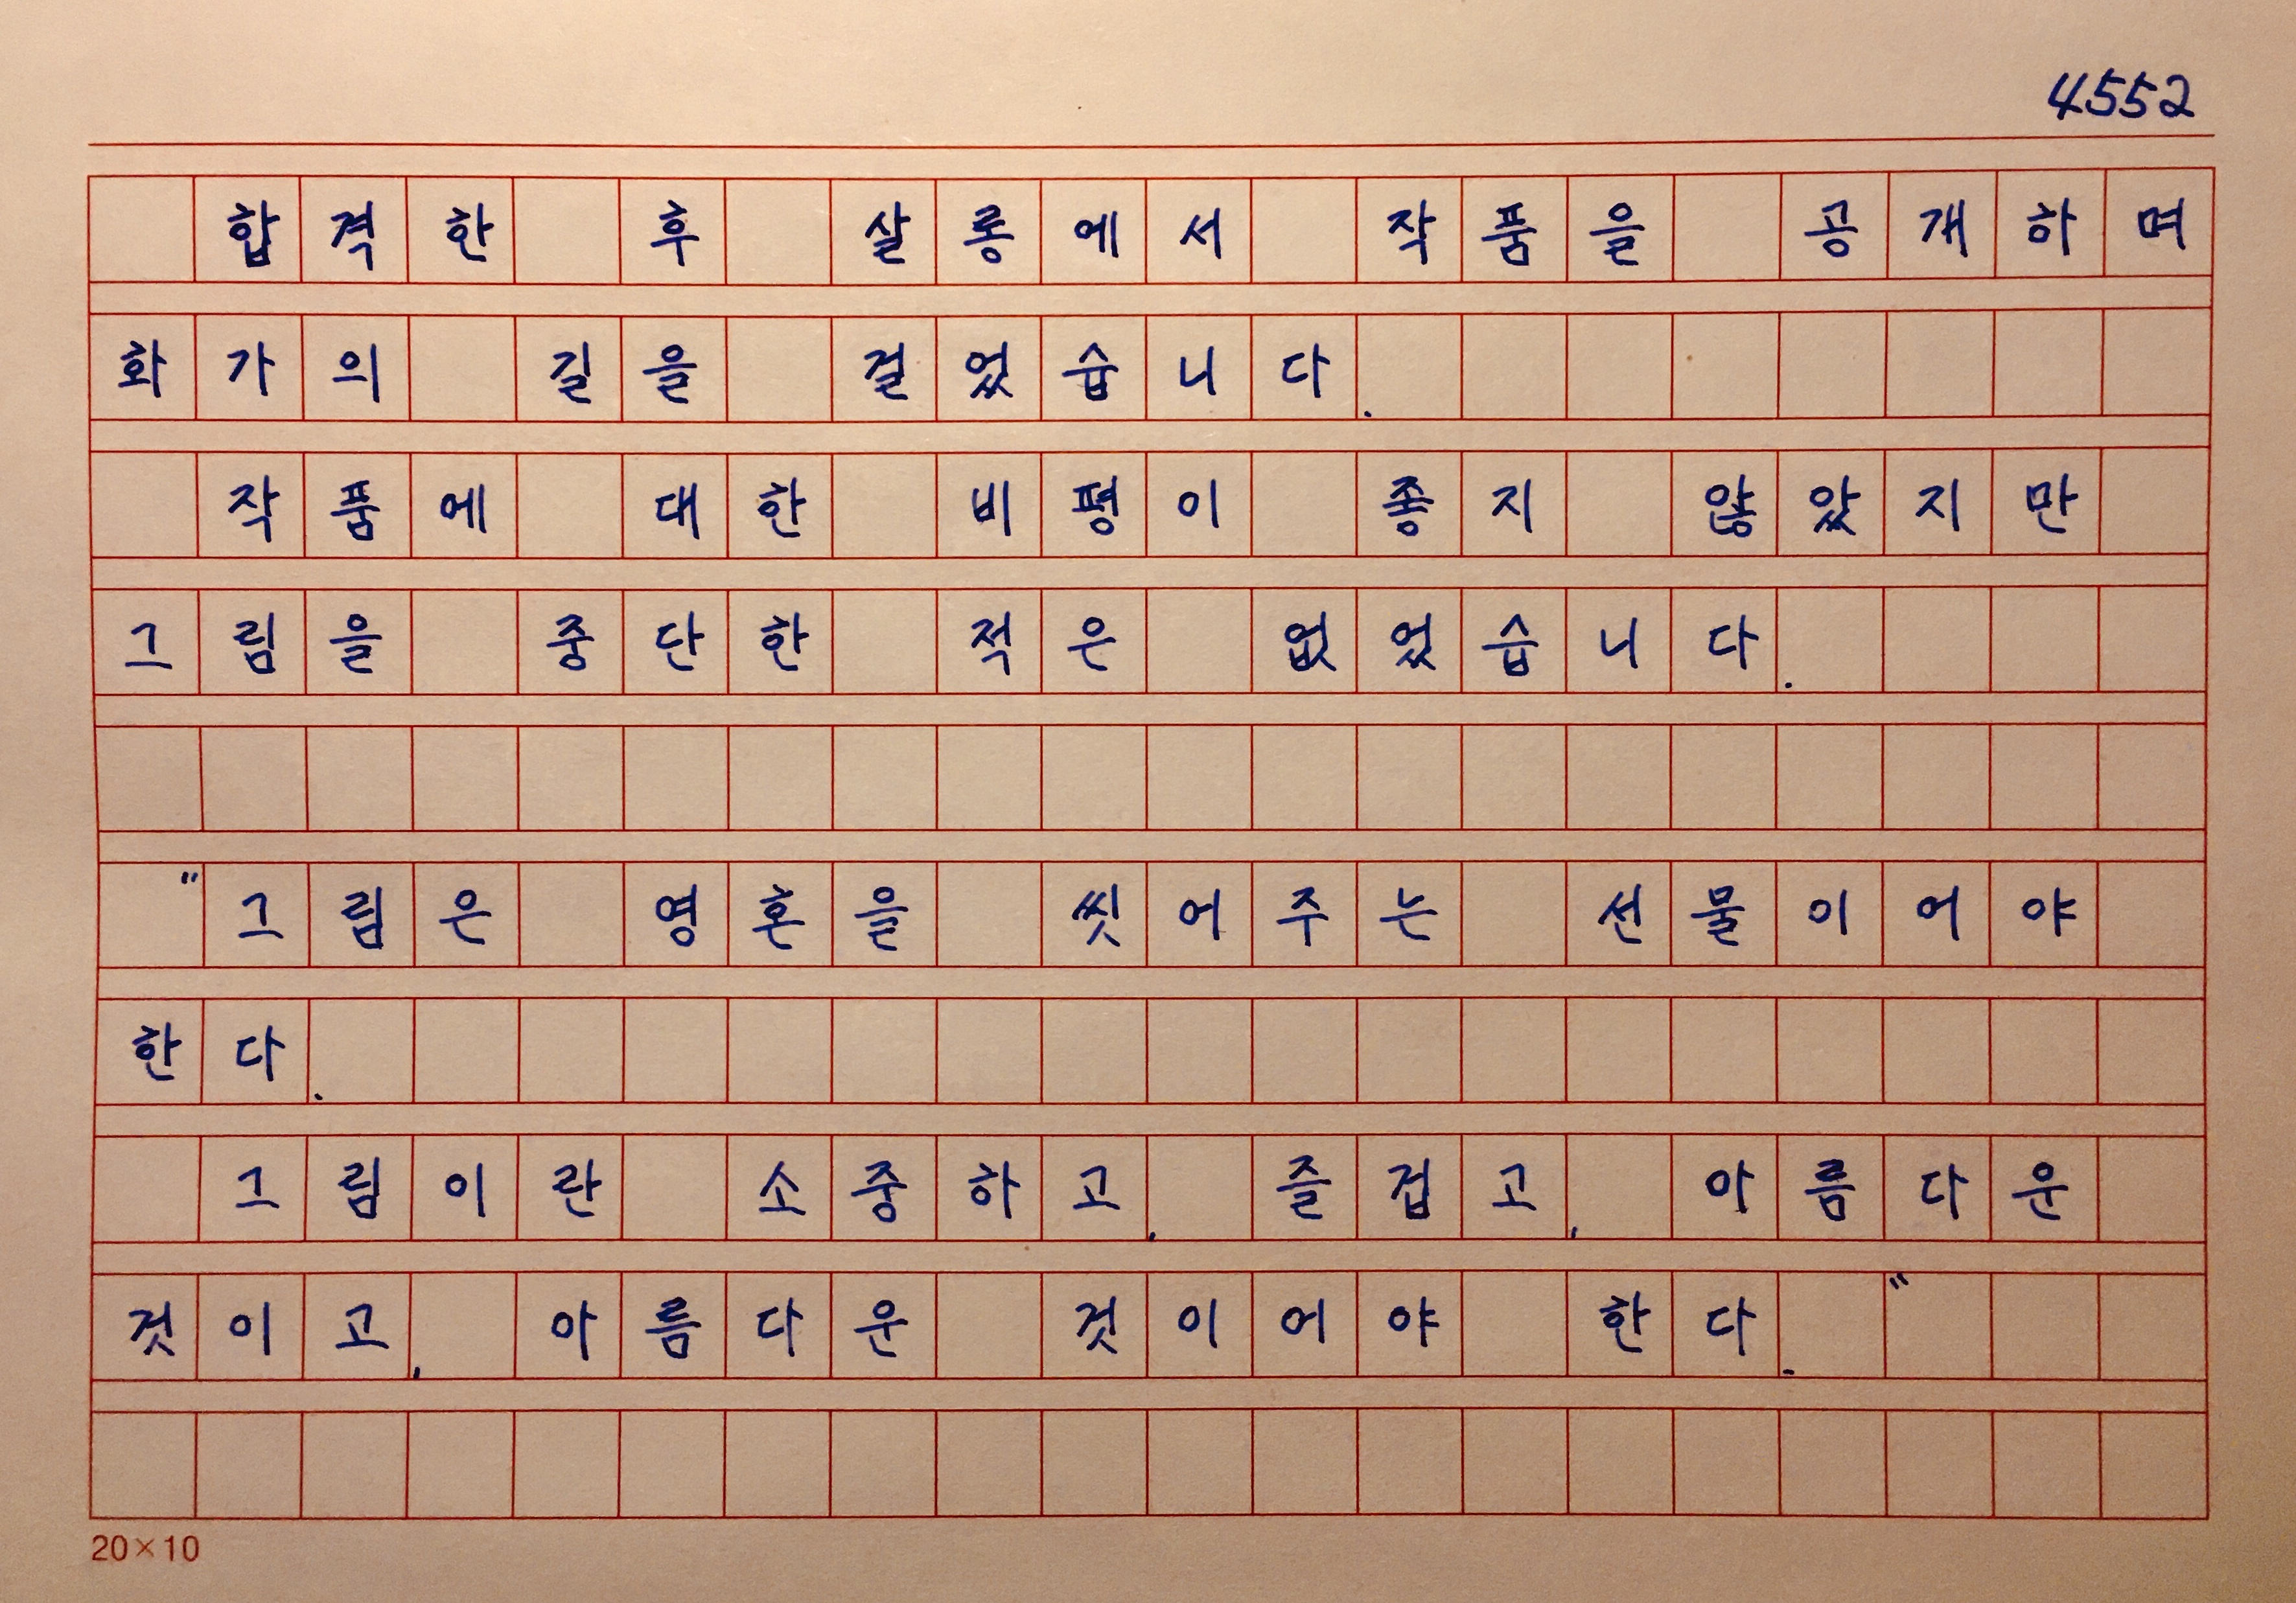 4552
합격한 후 살롱에서 작품을 공개하며
화가의 길을 걸었습니다.
작품에 대한 비평이 좋지 않았지만
그림을 중단한 적은 없었습니다.
"그림은 영혼을 씻어주는 선물이어야
한다.
그림이란 소중하고, 즐겁고, 아름다운
것이고, 아름다운 것이어야 한다."
20×10